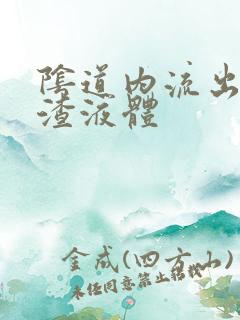 陰道内流出
渣液體
金成(四方山)
未经同意禁止转载